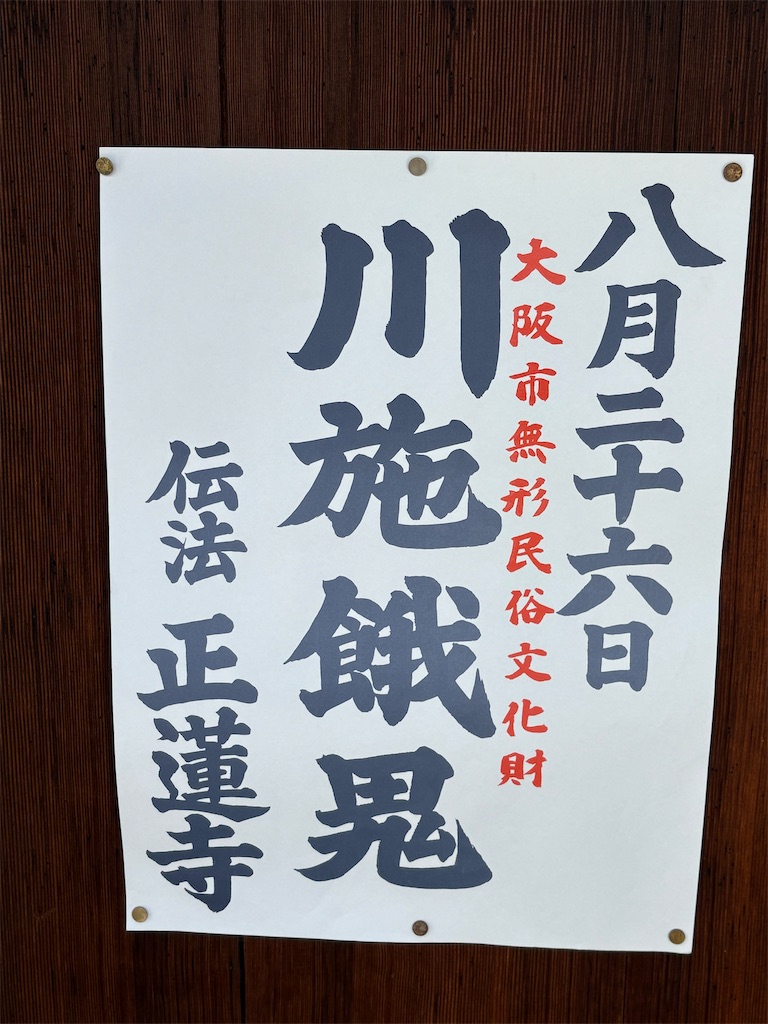 八月二十六日
大阪市無形民俗文化財
川施餓鬼
伝法 正蓮寺